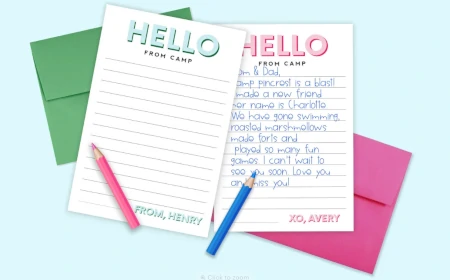 HELLO
FROM CAMP
FROM, HENRY
HELLO
FROM CAMP
& Dad,
pinecrest is a blast!
made a new friend
her name is Charlotte
We have gone swimming,
roasted marshmallows
made forts and
played so many fun
games. I can't wait to
see you soon. Love you
and miss you!
XO, AVERY
Click to zoom